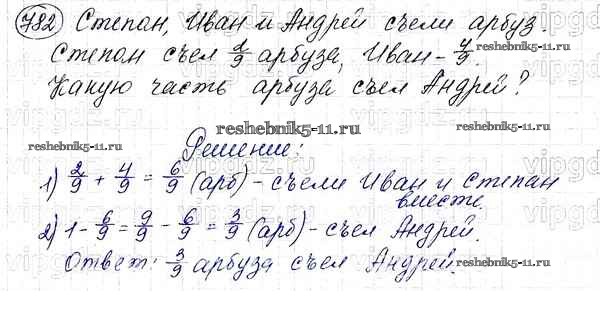 782 Степан, Иван и Андрей съели арбуз.
Степан съел 2/9 арбуза, Иван - 4/9.
reshebnik5-11.ru
Какую часть арбуза съел Андрей?
reshebnik5-11.ru
Решение:
1) 2/9 + 4/9 = 6/9 (арб) - съели Иван и Степан
вместе.
2) 1 - 6/9 = 9/9 - 6/9 = 3/9 (арб) - съел Андрей.
Ответ: 3/9 арбуза съел Андрей.
reshebnik5-11.ru
vipgdz.ru